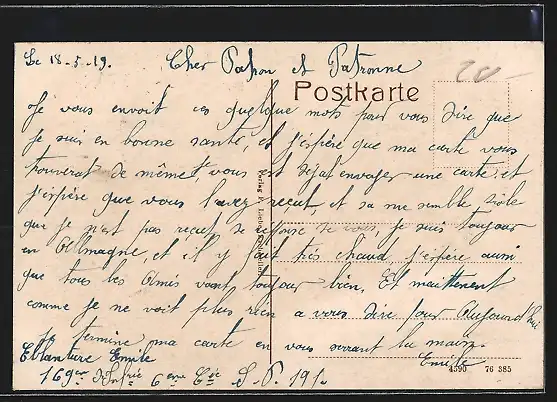 Le 18-5-19. Cher Patron et Patronne
Postkarte
Je vous envoit ces quelque mots pour vous dire que
Je suis en bonne santé, et j'espére que ma carte vous
trouverat de même, vous est déjat envoyer une carte, et
j'espére que vous l'avez reçut, et sa me semble drole
que je n'est pas reçut se réponse de vous, Je suis toujour
en Allmagne, et il y fait très chaud j'espére aussi
que tous les Amis vont toujour bien. Et maittenent
comme je ne voit plus rien a vous dire pour Aujourd'hui
je termine ma carte en vous serrant la main.
Emile
Emile
169em Infrie 6eme Cie S.P. 191.
4590 76 385
Verlag